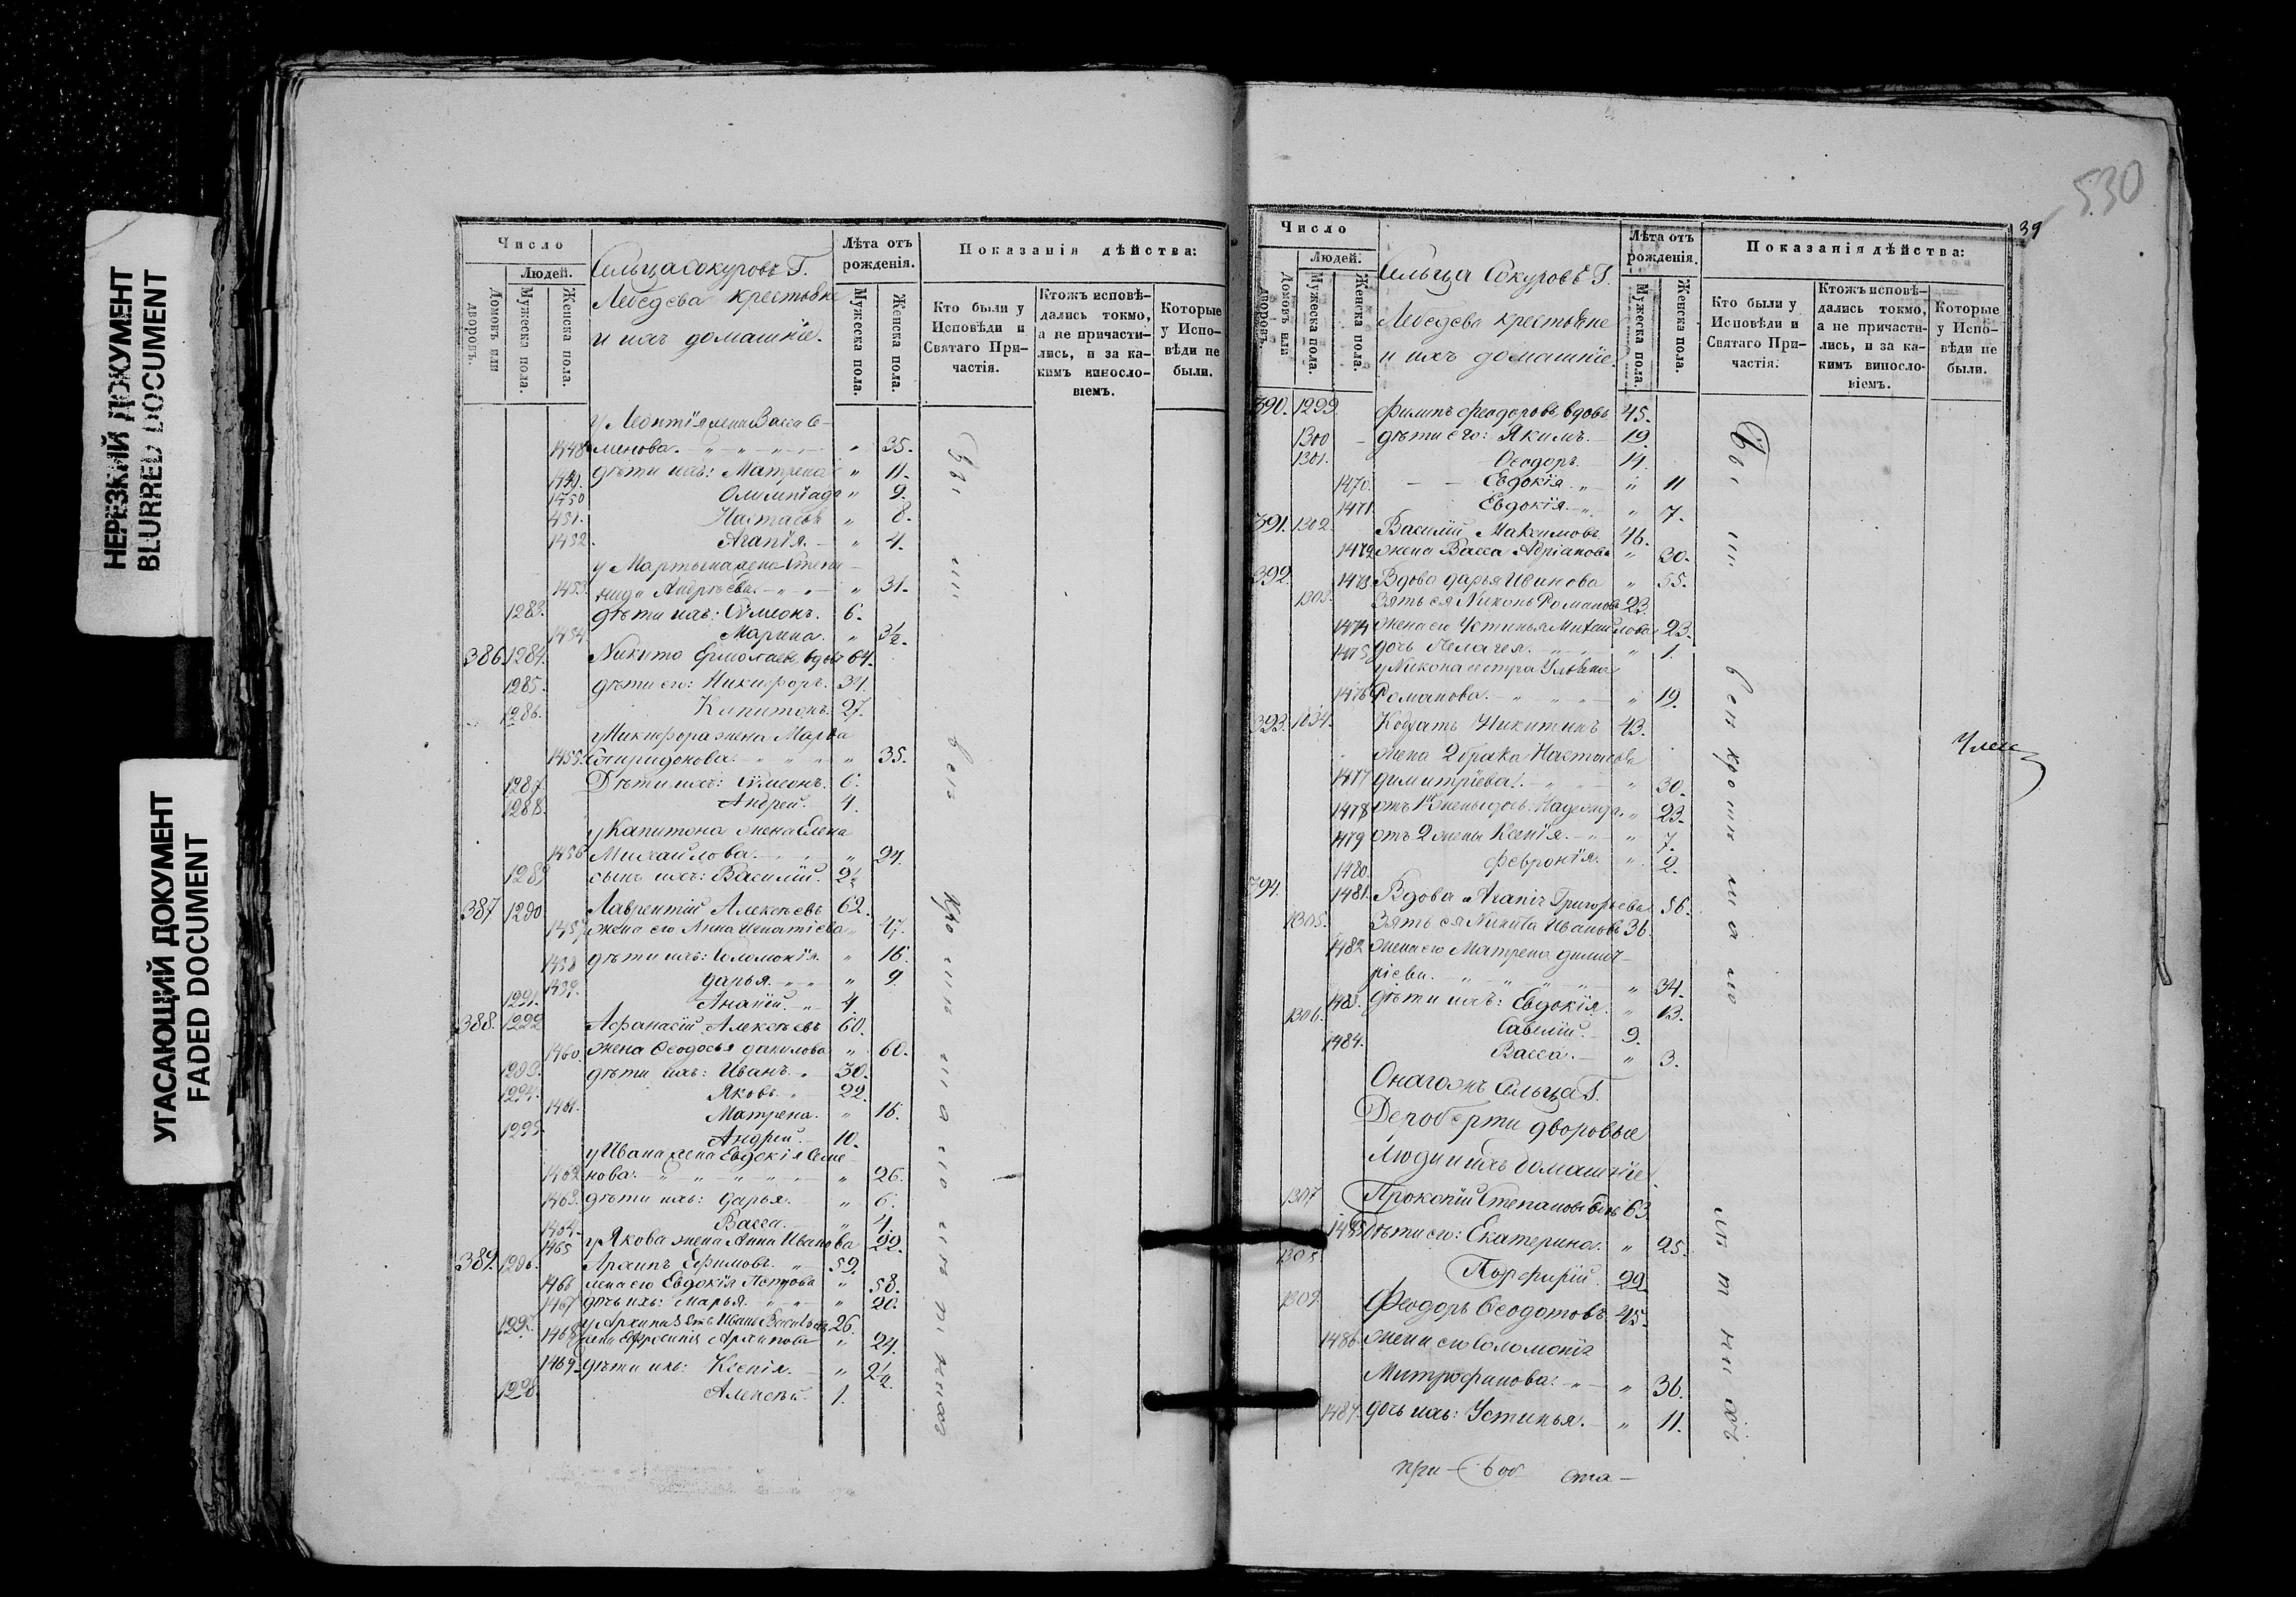 НЕРЕЗКИЙ ДОКУМЕНТ
BLURRED DOCUMENT
УГАСАЮЩИЙ ДОКУМЕНТ
FADED DOCUMENT
Число
Людей.
Домовъ или дворовъ.
Мужеска пола.
Женска пола.
Сельца Сокуровъ Г.
Лебедева крестьяне
и ихъ домашніе.
Лѣта отъ рожденія.
Мужеска пола.
Женска пола.
Показанія дѣйства:
Кто были у Исповѣди и Святаго Причастія.
Ктожъ исповѣдались токмо, а не причастились, и за какимъ винословіемъ.
Которые у Исповѣди не были.
у Леонтія жена Васса Се-
1448 менова. " 35.
1449. дѣти ихъ: Матрена " 11.
1450 Олимпіада " 9.
1451. Настасья " 8.
1452. Агапія. " 4.
у Мартына жена Степа-
1453. нида Андреева. " 31.
1283. дѣти ихъ: Сѵмеонъ. 6.
1454 Марина. " 3½.
386. 1284. Никита Ермолаевъ вдовъ 64.
1285. дѣти его: Никифоръ. 34.
1286. Капитонъ. 27.
у Никифора жена Марѳа
1455. Спиридонова. " 35.
1287. Дѣти ихъ: Сѵмеонъ. 6.
1288. Андрей. 4.
у Капитона жена Елена
1456 Михаилова. " 24.
1289 сынъ ихъ: Василій. 2½
387 1290 Лаврентій Алексѣевъ 62.
1457 жена его Анна Игнатіева " 47.
1458 дѣти ихъ: Соломонія. " 16.
1459. Дарья. " 9.
1291. Ананій. 4.
388. 1292 Аѳанасій Алексѣевъ 60.
1460. жена Ѳеодосья Данилова " 60.
1293. дѣти ихъ: Иванъ. 30.
1294. Яковъ. 22.
1461. Матрена. " 16.
1295. Андрей. 10.
у Ивана жена Евдокія Семе-
1462 нова. " 26.
1463. дѣти ихъ: Дарья. " 6.
1464. Васса. " 4.
1465 у Якова жена Анна Иванова 22.
389. 1296. Архипъ Ефимовъ. 59.
1466 жена его Евдокія Петрова " 58.
1467 дочь ихъ: Марья. " 20.
1297. у Архипа зять Иванъ Васильевъ 26.
1468 жена Ефросинія Архипова " 24.
1469. дѣти ихъ: Ксенія. " 2½.
1298 Алексѣй. 1.
530
39
Число
Людей.
Домовъ или дворовъ.
Мужеска пола.
Женска пола.
Сельца Сокуровъ Г.
Лебедева крестьяне
и ихъ домашніе.
Лѣта отъ рожденія.
Мужеска пола.
Женска пола.
Показанія дѣйства:
Кто были у Исповѣди и Святаго Причастія.
Ктожъ исповѣдались токмо, а не причастились, и за какимъ винословіемъ.
Которые у Исповѣди не были.
390. 1299. Филипъ Феодоровъ вдовъ 45.
1300 дѣти его: Якимъ. 19.
1301. Ѳеодоръ. 14.
1470. Евдокія. " 11
1471. Евдокія. " 7.
391. 1302. Василій Максимовъ 46.
1472 жена Васса Адріанова " 30.
392. 1473. Вдова Дарья Иванова " 55.
1303. Зять ея Никонъ Романовъ 23.
1474 жена его Устинья Михайлова 23.
1475 дочь Пелагея. " 1.
у Никона сестра Ульяна
1476 Романова. " 19.
393. 1304. Кодратъ Никитинъ 43.
жена 2 брака Настасья
1477 Димитріева. " 30.
1478 отъ 1й жены дочь: Надежда. " 23.
1479 отъ 2 жены Ксенія. " 7.
1480. Февронія. " 2.
394. 1481. Вдова Агапія Григорьева 56.
1305. Зять ея Никита Ивановъ 36.
1482 жена его Матрена Димит-
ріева. " 34.
1483. дѣти ихъ: Евдокія. " 13.
1306. Савелій. 9.
1484. Васса. " 3.
Онагожъ Сельца Г.
Дероберти дворовые
люди и ихъ домашніе.
1307 Прокопій Степановъ вдовъ 63.
1485 Дѣти его: Екатерина. " 25.
1308. Порфирій. 22.
1309. Феодоръ Ѳеодотовъ. 45.
1486. жена его Соломонія
Митрофанова. " 36.
1487. дочь ихъ: Устинья. " 11.